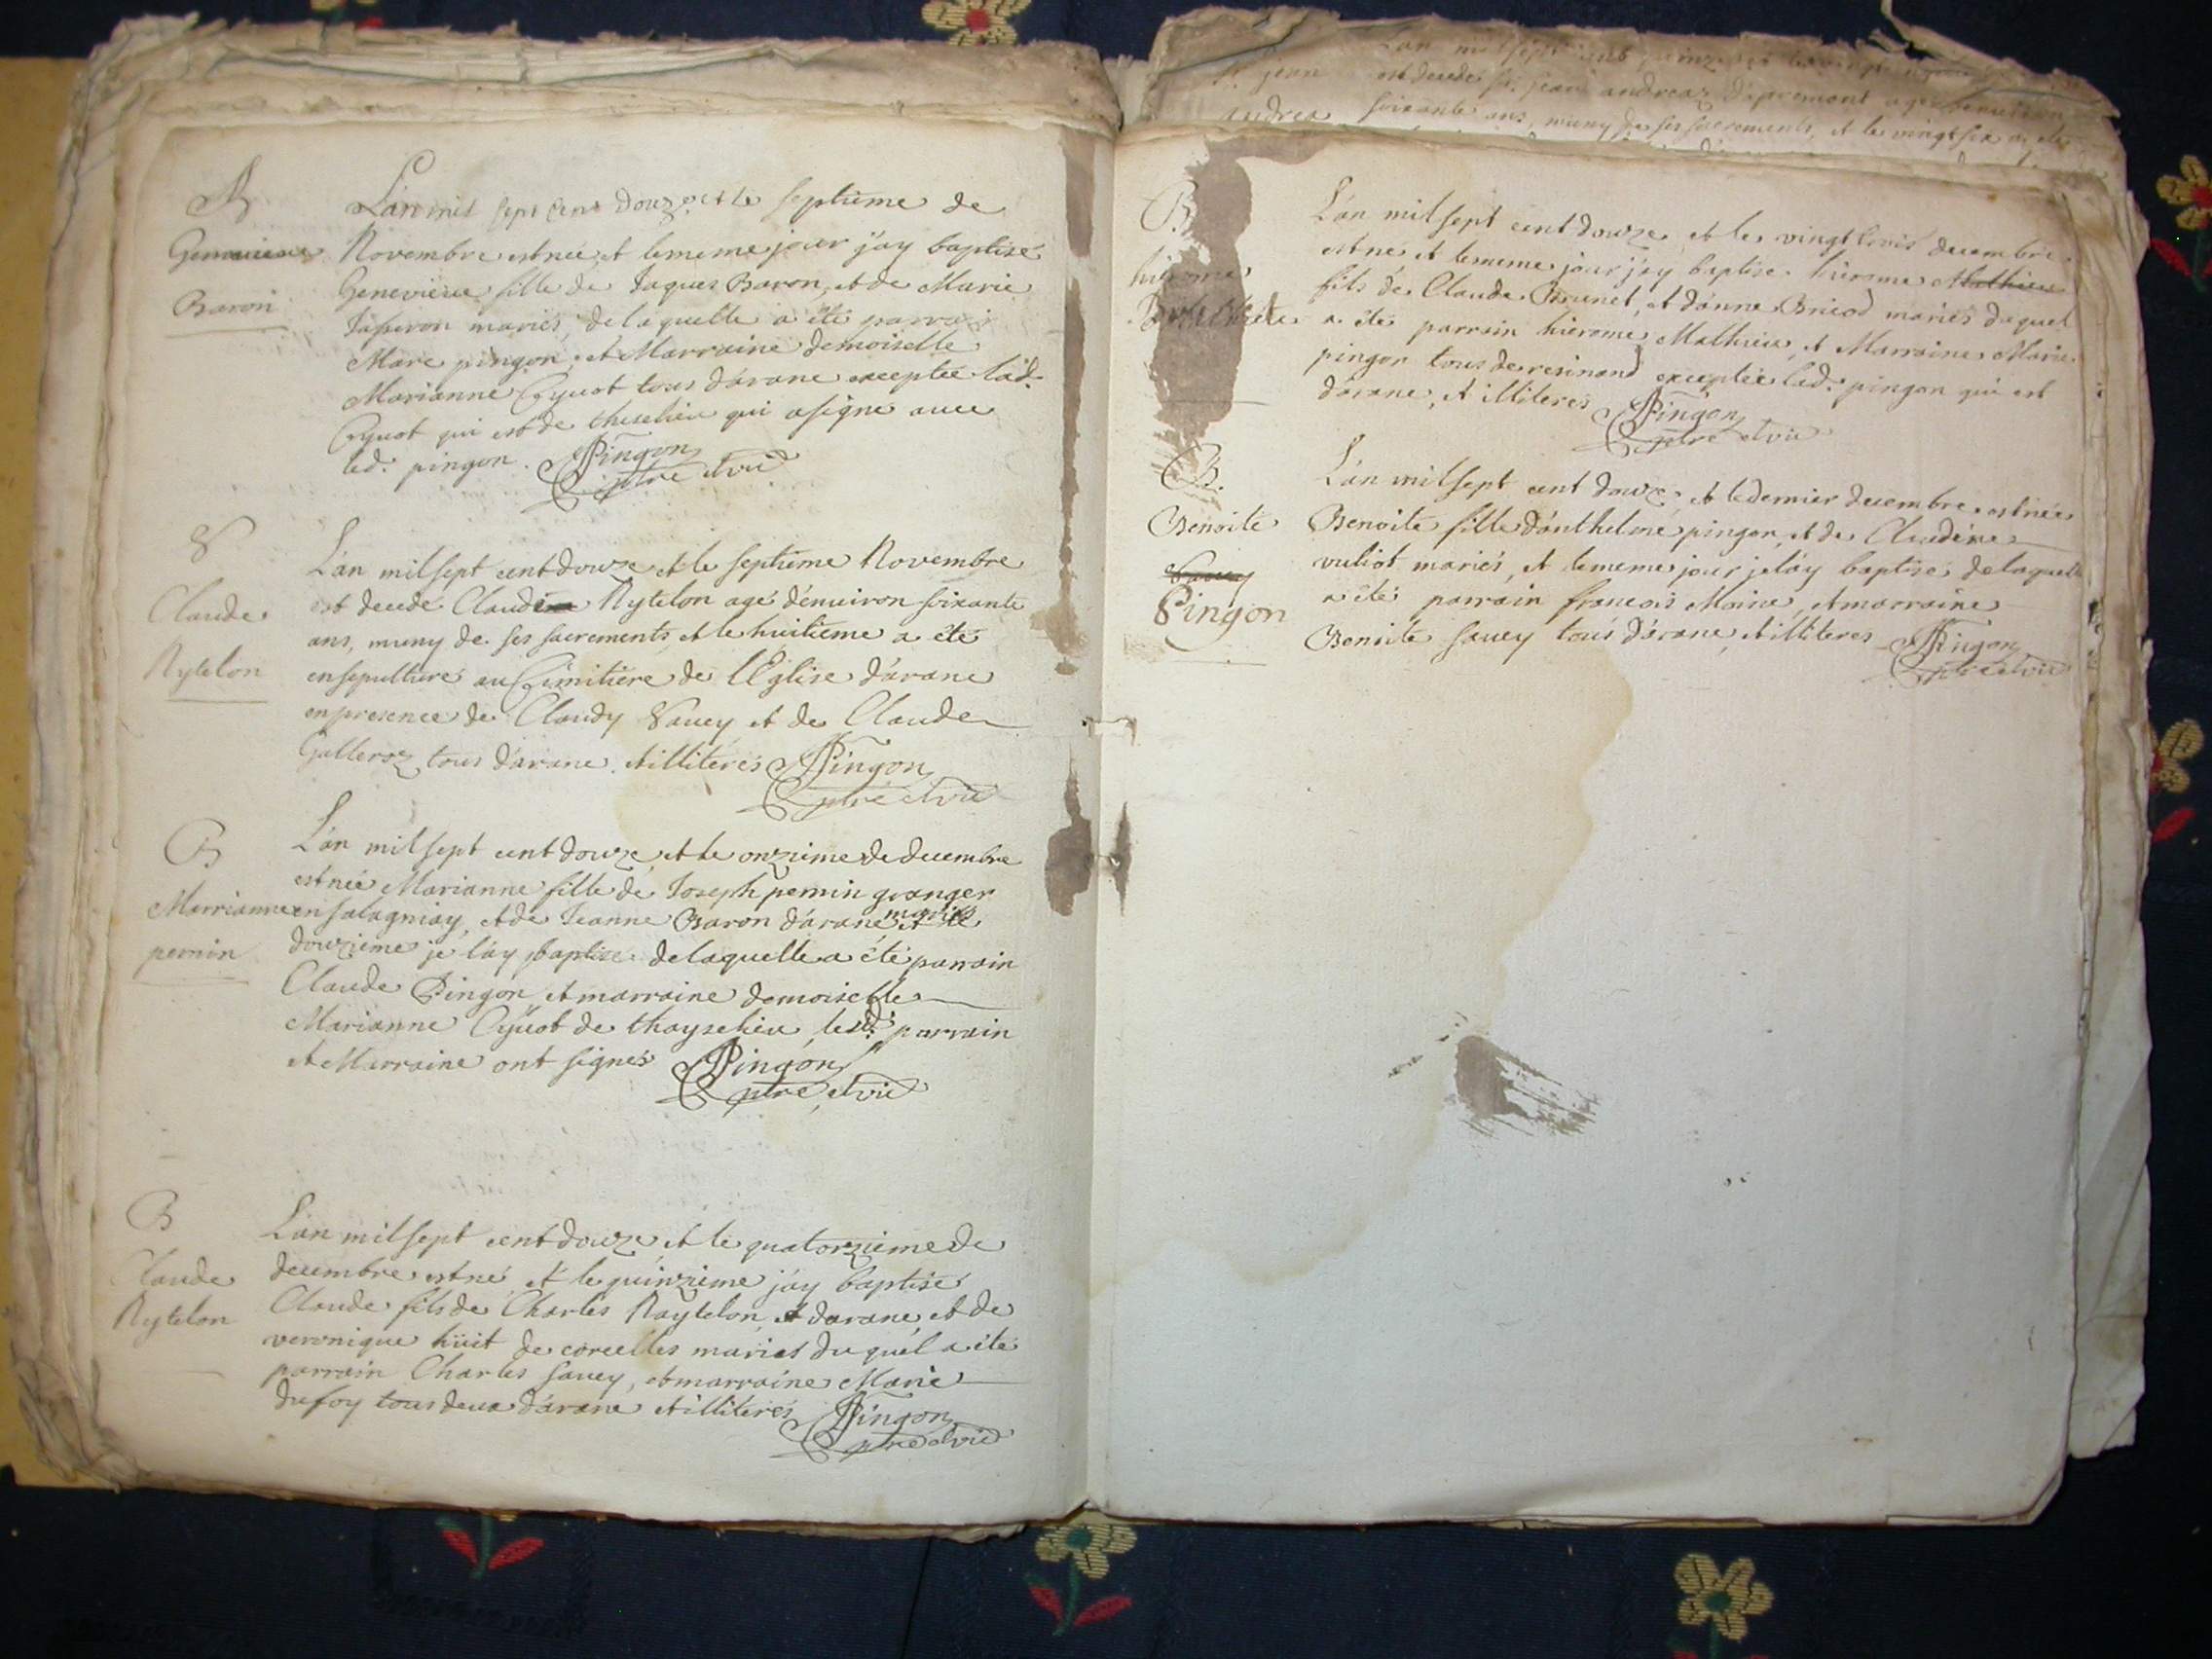 B
Genevieve
Baron
L'an mil sept cens douze et le septieme de
Novembre est neé, et le meme jour j'ay baptisé
Genevieve fille de Jaques Baron, et de Marie
mariés, de laquelle a été parrain
Marc pingon, et Marraine demoiselle
Marianne Cyuot tous d'arane exceptée lad.
Cyuot qui est de theselieu qui a signé avec
led. pingon. Pingon
ptre et vic
S
Claude
Rytelon
L'an mil sept cent douze et le septieme Novembre
est decedé Claude Rytelon agé d'enuiron soixante
ans, muny de ses sacrements, et le huitieme a été
ensepulturé au Cimitiere de l'Eglise d'arane
en presence de Claudy Sauey et de Claude
Galleroz tous d'arane. et illiterés Pingon
ptre et vic
B
Marrianne
pernin
L'an mil sept cent douze, et le onzieme de decembre
est neé Marianne fille de Joseph pernin granger
en salagniay, et de Jeanne Baron d'arane mariés et le
douzieme je l'ay baptisé de laquelle a été parrain
Claude Pingon, et marraine demoiselle
Marianne Cyuot de thayselieu, lesd. parrain
et Marraine ont signés Pingon
ptre et vic
B
Claude
Rytelon
L'an mil sept cent douze, et le quatorzieme de
decembre est né, et le quinzieme j'ay baptisé
Claude fils de Charles Raytelon, et d'arane, et de
veronique huit de corcelles mariés duquel a été
parrain Charles sauey, et marraine Marie
dufoy tous deux d'arane et illiterés Pingon
ptre et vic
B
hierome
L'an mil sept cent douze, et le vingt trois decembre
est né et le meme jour j'ay baptisé hierome Mathieu
fils de Claude Brunet, et d'anne Briod mariés duquel
a été parrain hierome Mathieu, et Marraine Marie
pingon tous de resinand exceptée lad. pingon qui est
d'arane, et illiterés Pingon
ptre et vic
B.
Benoite
Sauey
Pingon
L'an mil sept cent douze, et le dernier decembre est neé
Benoite fille d'anthelme pingon, et de Claudine
vuliot mariés, et le meme jour je l'ay baptisé, de laquelle
a été parrain francois Moine, et marraine
Benoite sauey tous d'arane, et illiterés Pingon
ptre et vic
L'an mil sept cent quinze
jean
andrea
est decedé Sr. jean andreaz d'apremont agé d'environ
soixante ans, muny de ses sacrements, et le vingt six a été